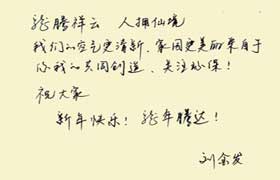 龙腾祥云 人拥仙境
我们的空气更清新、家园更美丽来自于
你我的共同创造、关注环保!
祝大家
新年快乐! 龙年腾达!
刘金发